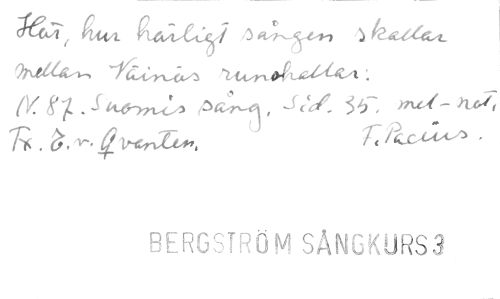 Hör, hur härligt sången skallar
mellan Väinös runohallar:
N. 87. Suomis sång. Sid. 35. mel-not.
Tx. E. v. Qvanten. F. Pacius.
BERGSTRÖM SÅNGKURS 3